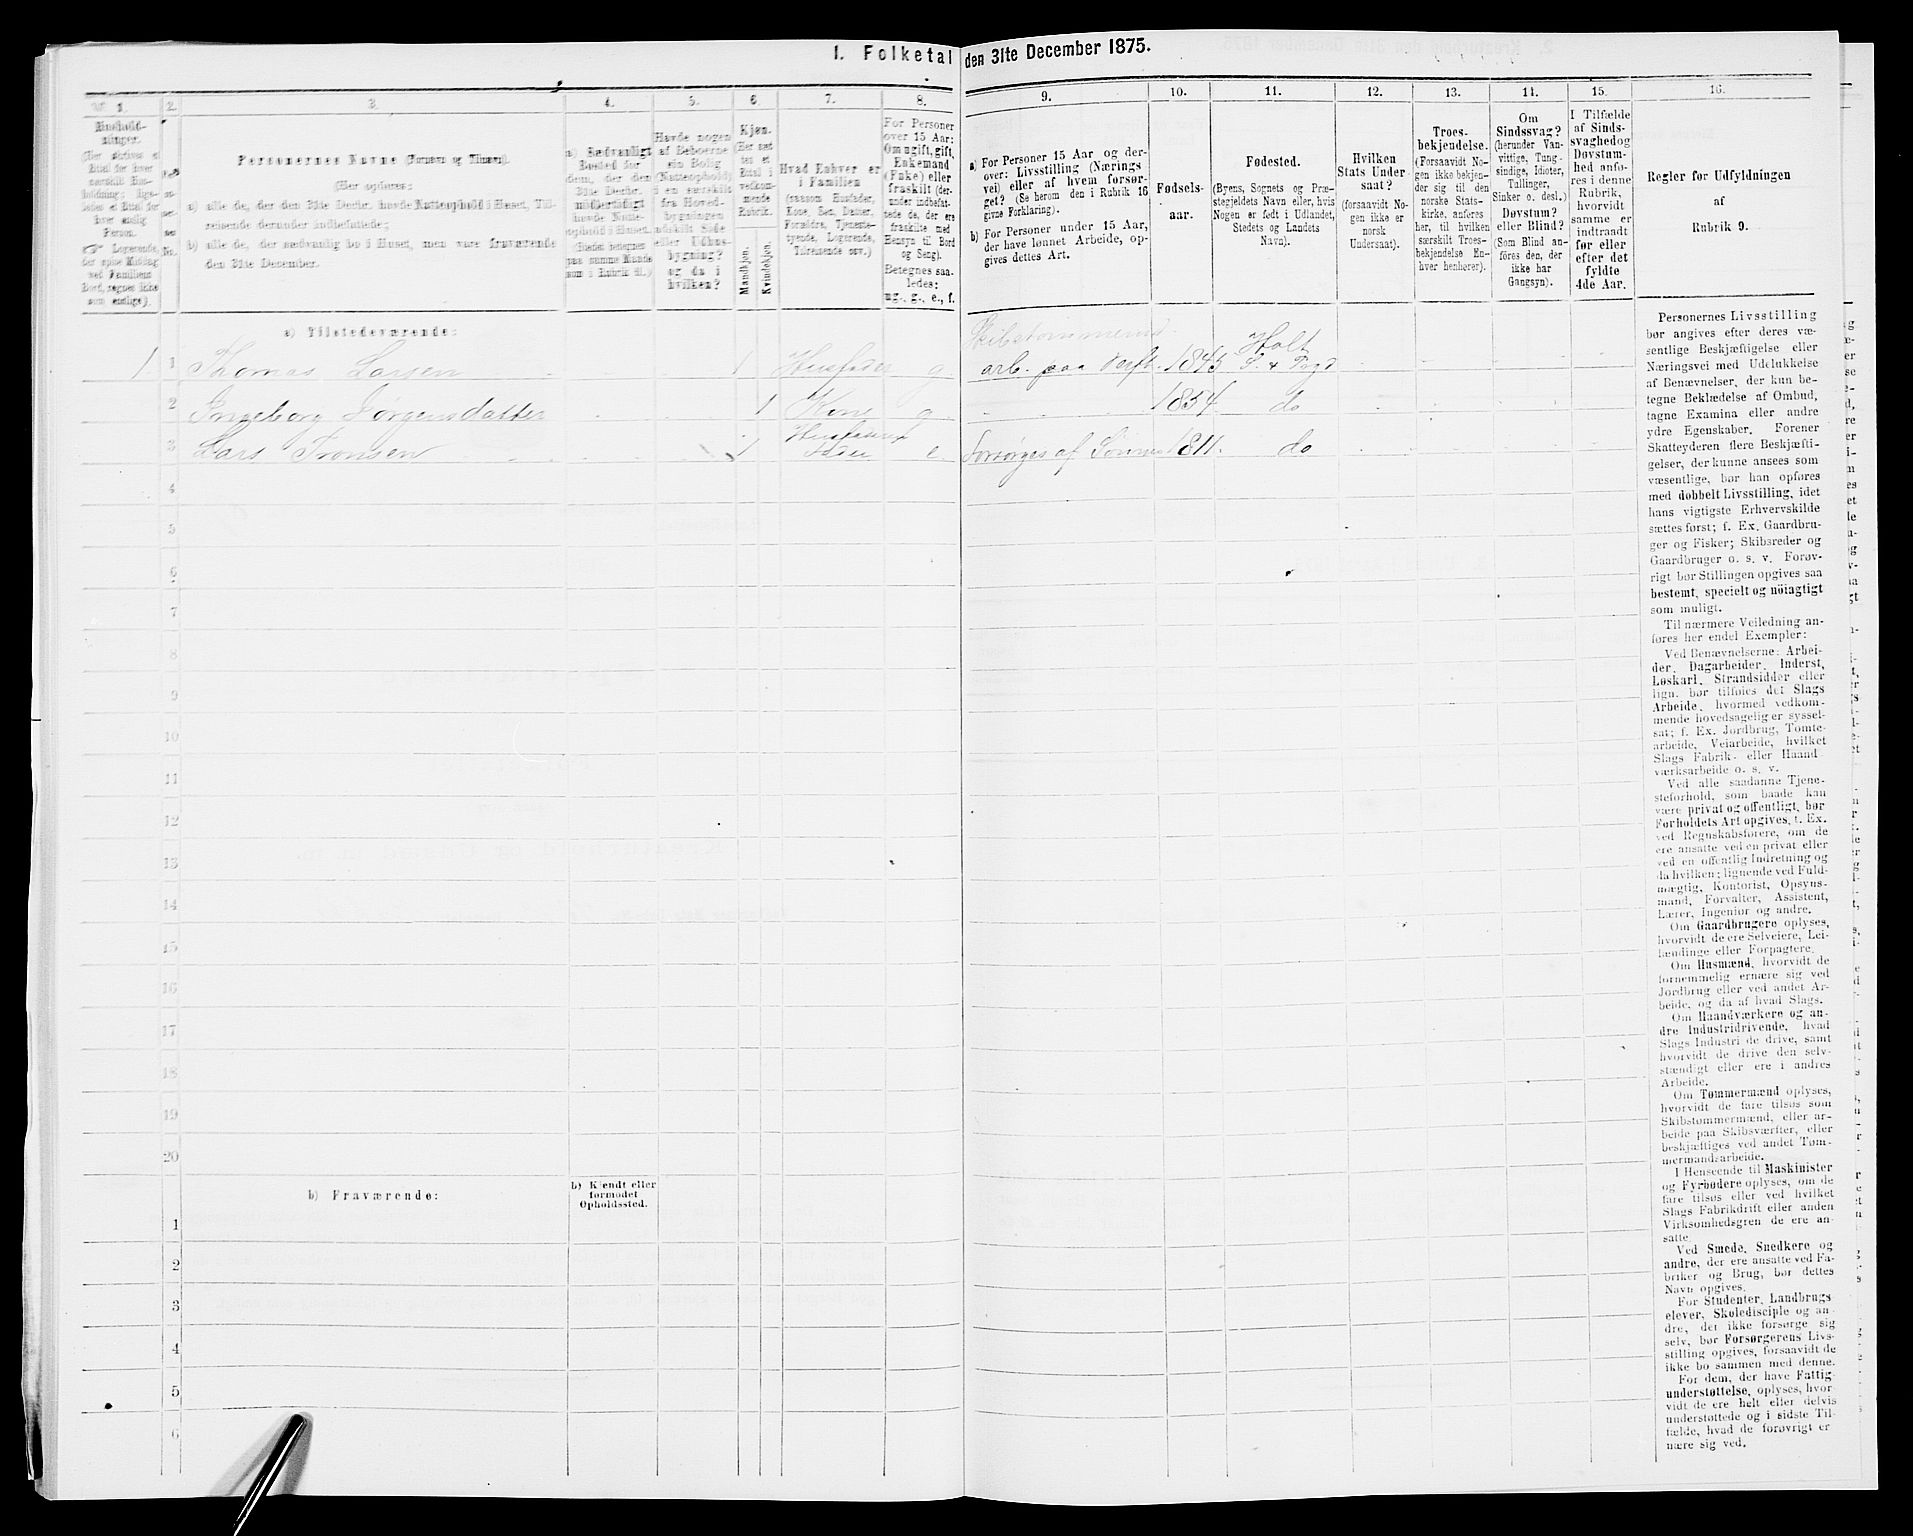 1. Folketal den 31te December 1875.
1. 2. 3. 4. 5. 6. 7. 8. 9. 10. 11. 12. 13. 14. 15. 16.
Personernes Navne (Fornavn og Tilnavn).
(Her opføres:
a) alle de, der den 31te Decbr. havde Natteophold i Huset, Til-
reisende derunder indbefattede;
b) alle de, der sædvanlig bo i Huset, men vare fraværende
den 31te December.
a) Sædvanligt
Bosted for
dem, der den
31te Decbr.
midlertidigt
havde Natte-
ophold i Huset.
(Stedet betegnes
paa samme Maade
som i Rubrik 11.)
Havde nogen
af Beboerne
ein Bolig
(Natteophold)
i en særskilt
fra Hoved-
bygningen
adskilt Side
eller Udhus-
bygning?
og da i
hvilken?
Kjøn.
Mandkjøn.
Kvindekjøn.
Hvad Enhver er
i Familien
(saasom Husfader,
Kone, Søn, Datter,
Forældre, Tjeneste-
tyende, Logerende,
Tilreisende osv.)
For Personer
over 15 Aar:
Om ugift, gift,
Enkemand
(Enke) eller
fraskilt (der-
under indbefat-
tede de, der ere
fraskilte med
Hensyn til Bord
og Seng).
Betegnes saa-
ledes:
ug., g., e., f.
a) For Personer 15 Aar og der-
over: Livsstilling (Nærings
vei) eller af hvem forsør-
get? (Se herom den i Rubrik 16
givne Forklaring).
b) For Personer under 15 Aar,
der have lønnet Arbeide, op-
gives dettes Art.
Fødsels-
aar.
Fødested.
(Byens, Sognets og Præ-
stegjeldets Navn eller, hvis
Nogen er født i Udlandet,
Stedets og Landets
Navn).
Hvilken
Stats Under
saat?
(forsaavidt No-
gen ikke er
norsk
Undersaat).
Troes-
bekjendelse.
(Forsaavidt No-
gen ikke bekjen-
der sig til den
norske Stats-
kirke, anføres
her, til hvilken
særskilt Troes-
bekjendelse En-
hver henhører).
Om
Sindssvag?
(herunder Van-
vittige, Tung-
sindige, Idioter,
Tullinger,
Sinker o. desl.)
Døvstum?
eller Blind?
(Som Blind an-
føres den, der
ikke har
Gangsyn).
I Tilfælde
af Sinds-
svaghed og
Døvstum-
hed anfø-
res i denne
Rubrik,
hvorvidt
samme er
indtraadt
før eller
efter det
fyldte
4de Aar.
Regler for Udfyldningen
af
Rubrik 9.
a) Tilstedeværende:
1 1 Thomas Larsen 1 Husfader g
Skibstømmermd.
arb. paa Verft. 1845 Holt
S. & Prgd
2 Ingeborg Jørgensdatter 1 Kone g 1854. do
3 Lars Tronsen 1 Husfaders
Fader e. Forsørges af Sønnen 1811. do
4
5
6
7
8
9
10
11
12
13
14
15
16
17
18
19
20
b) Fraværende:
b) Kjendt eller
formodet
Opholdssted.
1
2
3
4
5
6
Personernes Livsstilling
bør angives efter deres væ-
sentlige Beskjæftigelse eller
Næringsvei med Udelukkelse
af Benævnelser, der kun be-
tegne Beklædelse af Ombud,
tagne Examina eller andre
ydre Egenskaber. Forener
Skatteyderen flere Beskjæfti-
gelser, der kunne ansees som
væsentlige, bør han opføres
med dobbelt Livsstilling, idet
hans vigtigste Erhvervskilde
sættes først; f. Ex. Gaardbru-
ger og Fisker; Skibsreder og
Gaardbruger o. s. v. Forøv-
rigt bør Stillingen opgives saa
bestemt, specielt og nöiagtigt
som muligt.
Til nærmere Veiledning an-
føres her endel Exempler:
Ved Benævnelserne: Arbei-
der, Dagarbeider, Inderst,
Løskarl, Strandsidder eller
lign. bør tilføies det Slags
Arbeide, hvormed vedkom-
mende hovedsagelig er syssel-
sat; f. Ex. Jordbrug, Tomte-
arbeide, Veiarbeide, hvilket
Slags Fabrik- eller Haand
værksarbeide o. s. v.
Ved alle saadanne Tjene-
steforhold, som baade kan
være privat og offentligt, bør
Forholdets Art opgives, f. Ex.
ved Regnskabsførere, om de
ere ansatte ved en privat eller
ved en offentlig Indretning og
da hvilken; lignende ved Fuld-
mægtig, Kontorist, Opsyns-
mand, Forvalter, Assistent,
Lærer, Ingeniør og andre.
Om Gaardbrugere oplyses,
hvorvidt de ere Selveiere, Lei-
lændinge eller Forpagtere.
Om Husmænd, hvorvidt de
fornemmelig ernære sig ved
Jordbrug eller ved andet Ar-
beide, og da af hvad Slags.
Om Haandværkere og an-
dre Industridrivende, hvad
Slags Industri de drive, samt
hvorvidt de drive den selv-
stændigt eller ere i andres
Arbeide.
Om Tømmermænd oplyses,
hvorvidt de fare tilsøs som
Skibstømmermænd, eller ar-
beide paa Skibsværfter, eller
beskjæftiges ved andet Tøm-
mermandsarbeide.
I Henseende til Maskinister
og Fyrbødere oplyses, om de
fare tilsøs eller ved hvilket
Slags Fabrikdrift eller anden
Virksomhedsgren de ere an-
satte.
Ved Smede, Snedkere og
andre, der ere ansatte ved Fa-
briker og Brug, bør dettes
Navn opgives.
For Studenter, Landbrugs
elever, Skoledisciple og an-
dre, der ikke forsørge sig
selv, bør Forsørgerens Livs-
stilling opgives, forsaavidt de
ikke bo sammen med denne.
For dem, der have Fattig-
understøttelse, oplyses, hvor-
vidt de ere helt eller delvis
understøttede og i sidste Til-
fælde, hvad de forøvrigt er
nære sig ved.